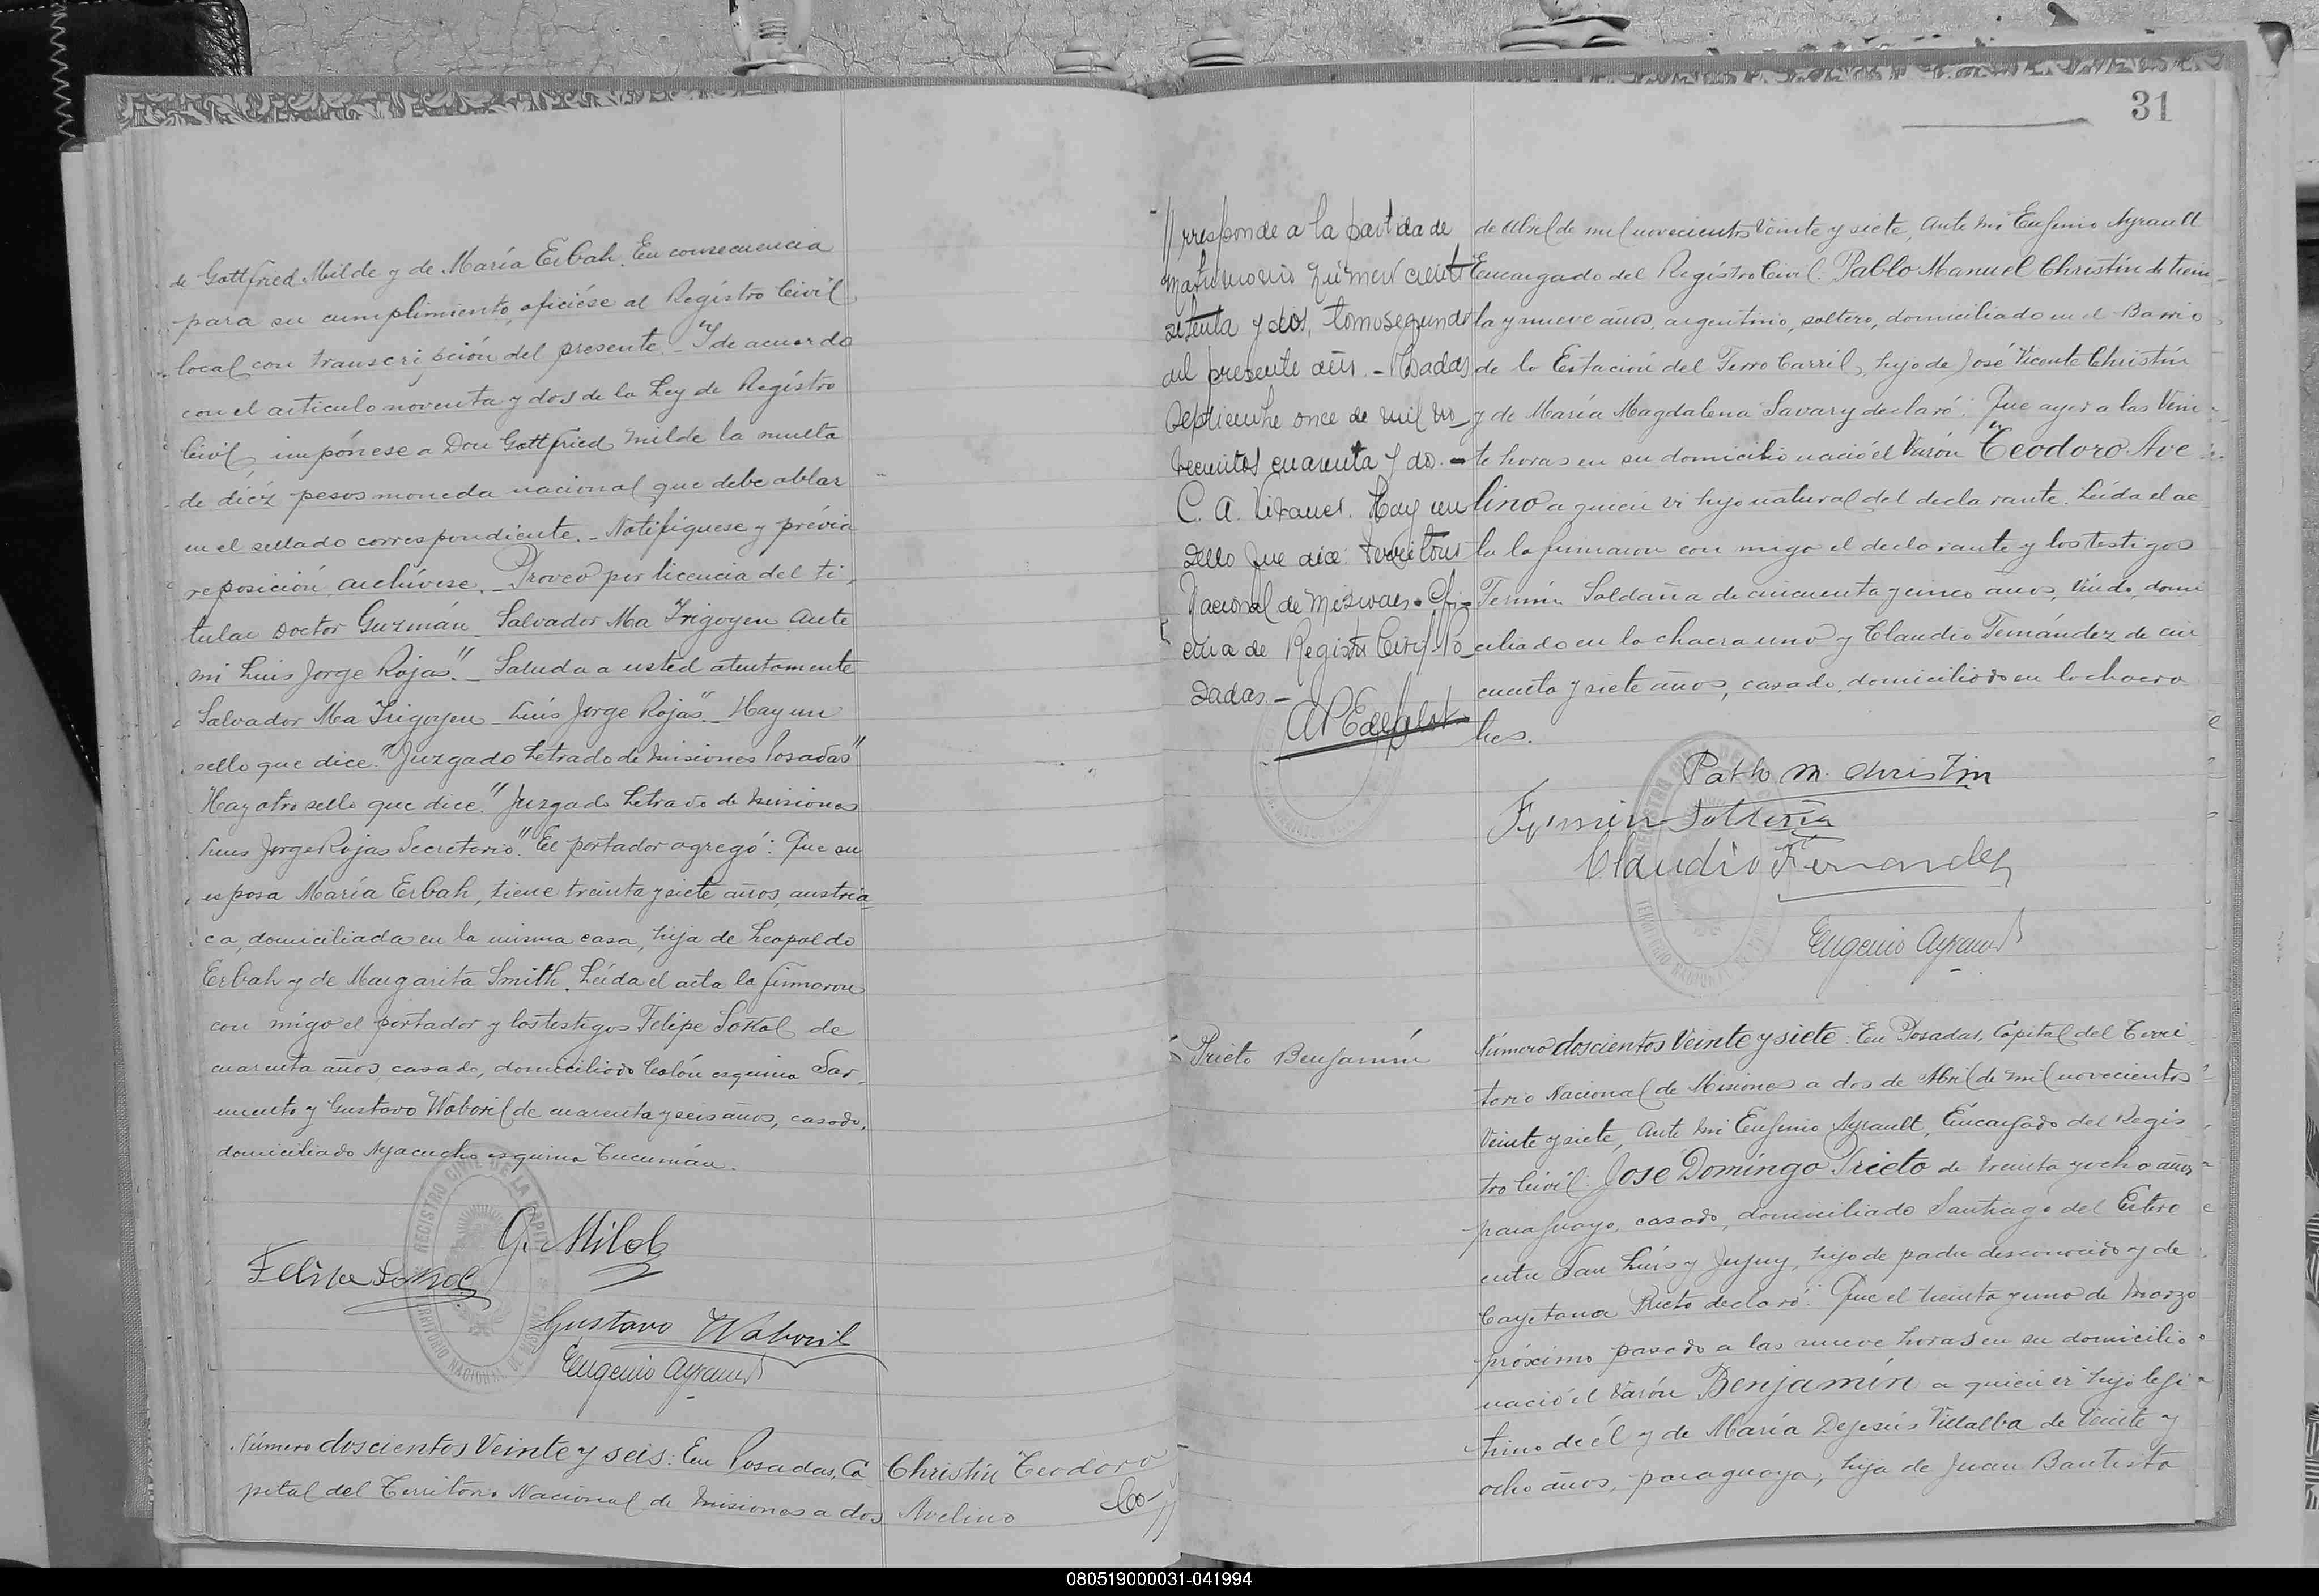 de Gottfried Milde y de María Erbah. En consecuencia
para su cumplimiento, oficiése al Registro Civil
local con transcripción del presente._ Y de acuerdo
con el articulo noventa y dos de la Ley de Registro
Civil impónese a Don Gottfried Milde la multa
de diéz pesos moneda nacional que debe oblar
en el sellado correspondiente._ Notifiquese y prévia
reposición, archívese._ Proveó por licencia del ti-
tular Doctor Guzmán_ Salvador Ma Irigoyen Ante
mi Luis Jorge Rojas"._ Saluda a usted atentamente
Salvador Ma Irigoyen_ Luis Jorge Rojas"_ Hay un
sello que dice "Juzgado Letrado de Misiones Posadas"
Hay otro sello que dice "Juzgado Letrado de Misiones
Luis Jorge Rojas Secretario". El portador agregó: Que su
esposa María Erbah, tiene treinta y siete años, austria
ca, domiciliada en la misma casa, hija de Leopoldo
Erbah y de Margarita Smith. Leída el acta la firmaron
con migo el portador y los testigos Felipe Sokol de
cuarenta años, casado, domiciliado Colón esquina Sar-
miento y Gustavo Waboril de cuarenta y seis años, casado,
domiciliado Ayacucho esquina Tucumán.
REGISTRO CIVIL DE LA CAPITAL
TERRITORIO NACIONAL DE MISIONES
G. Milde
Felipe Sokol
Gustavo Waboril
Eugenio Ayrault
Número doscientos Veinte y seis: En Posadas, Ca
pital del Territorio Nacional de Misiones a dos
Christin Teodoro
Avelino
Co-//
31
//rresponde a la partida de
matrimonio número ciento
setenta y dos, tomo segundo
del presente año. - Posadas
Septiembre once de mil no_
vecientos cuarenta y dos. -
C. A. Hay un
sello que dice: Territorio
Nacional de Misiones. Ofi-
cina de Registro Civil. Po_
sadas._
de Abril de mil novecientos Veinte y siete, Ante mi Eugenio Ayrault
Encargado del Registro Civil: Pablo Manuel Christin de trein_
ta y nueve años, argentino, soltero, domiciliado en el Barrio
de la Estación del Ferro Carril, hijo de José Vicente Christin
y de María Magdalena Savary declaró: Que ayer a las Vein
te horas en su domicilio nació el Varón Teodoro Ave
lino a quien vi hijo natural del declarante. Leída el ac
ta la firmaron con migo el declarante y los testigos
Fermín Saldaña de cincuenta y cinco años, Viudo, domi
ciliado en la chacra uno y Claudio Fernández de cin
cuenta y siete años, casado, domiciliado en la chacra
tres.
Pablo M. Christin
Fermin Saldaña
Claudio Fernandez
Eugenio Ayrault
Prieto Benjamín
Número doscientos Veinte y siete: En Posadas, Capital del Terri_
torio Nacional de Misiones a dos de Abril de mil novecientos
Veinte y siete, Ante mi Eugenio Ayrault, Encargado del Regis
tro Civil: José Domingo Prieto de treinta y ocho años
paraguayo, casado, domiciliado Santiago del Estero
entre San Luís y Jujuy, hijo de padre desconocido y de
Cayetana Prieto declaró: Que el treinta y uno de Marzo
próximo pasado a las nueve horas en su domicilio
nació el Varón Benjamín a quien vi hijo legí
timo de él y de María Dejesús Villalba de Veinte y
ocho años, paraguaya, hija de Juan Bautista
080519000031-041994